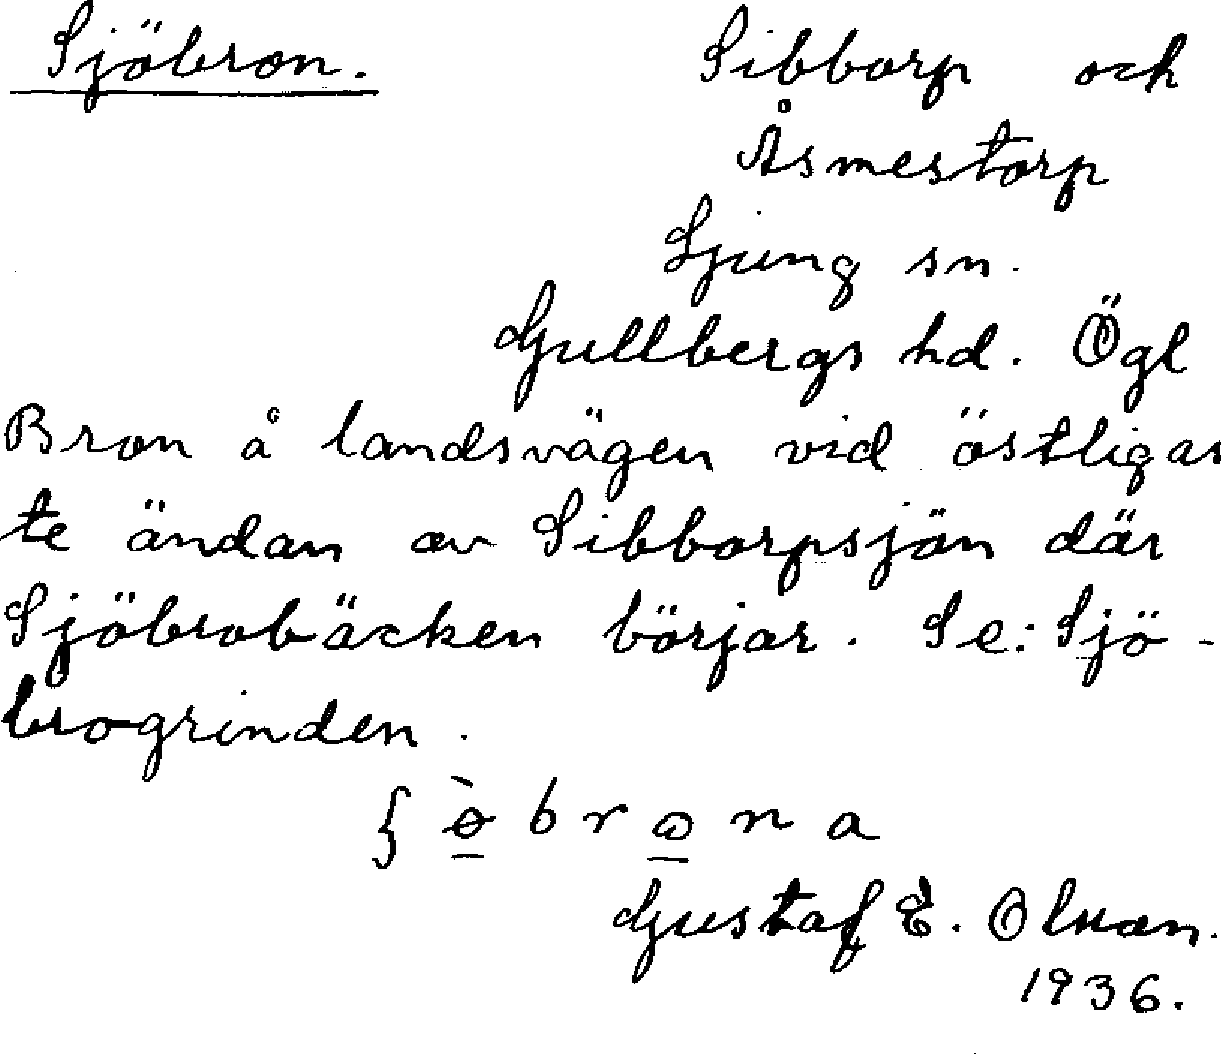 Sjöbron. Sibborp och
Åsmestorp
Ljung sn.
Gullbergs hd. Ögl
Bron å landsvägen vid östligas
te ändan av Sibborpsjön där
Sjöbrobäcken börjar. Se: Sjö-
brogrinden.
Gustaf E. Olsson.
1936.